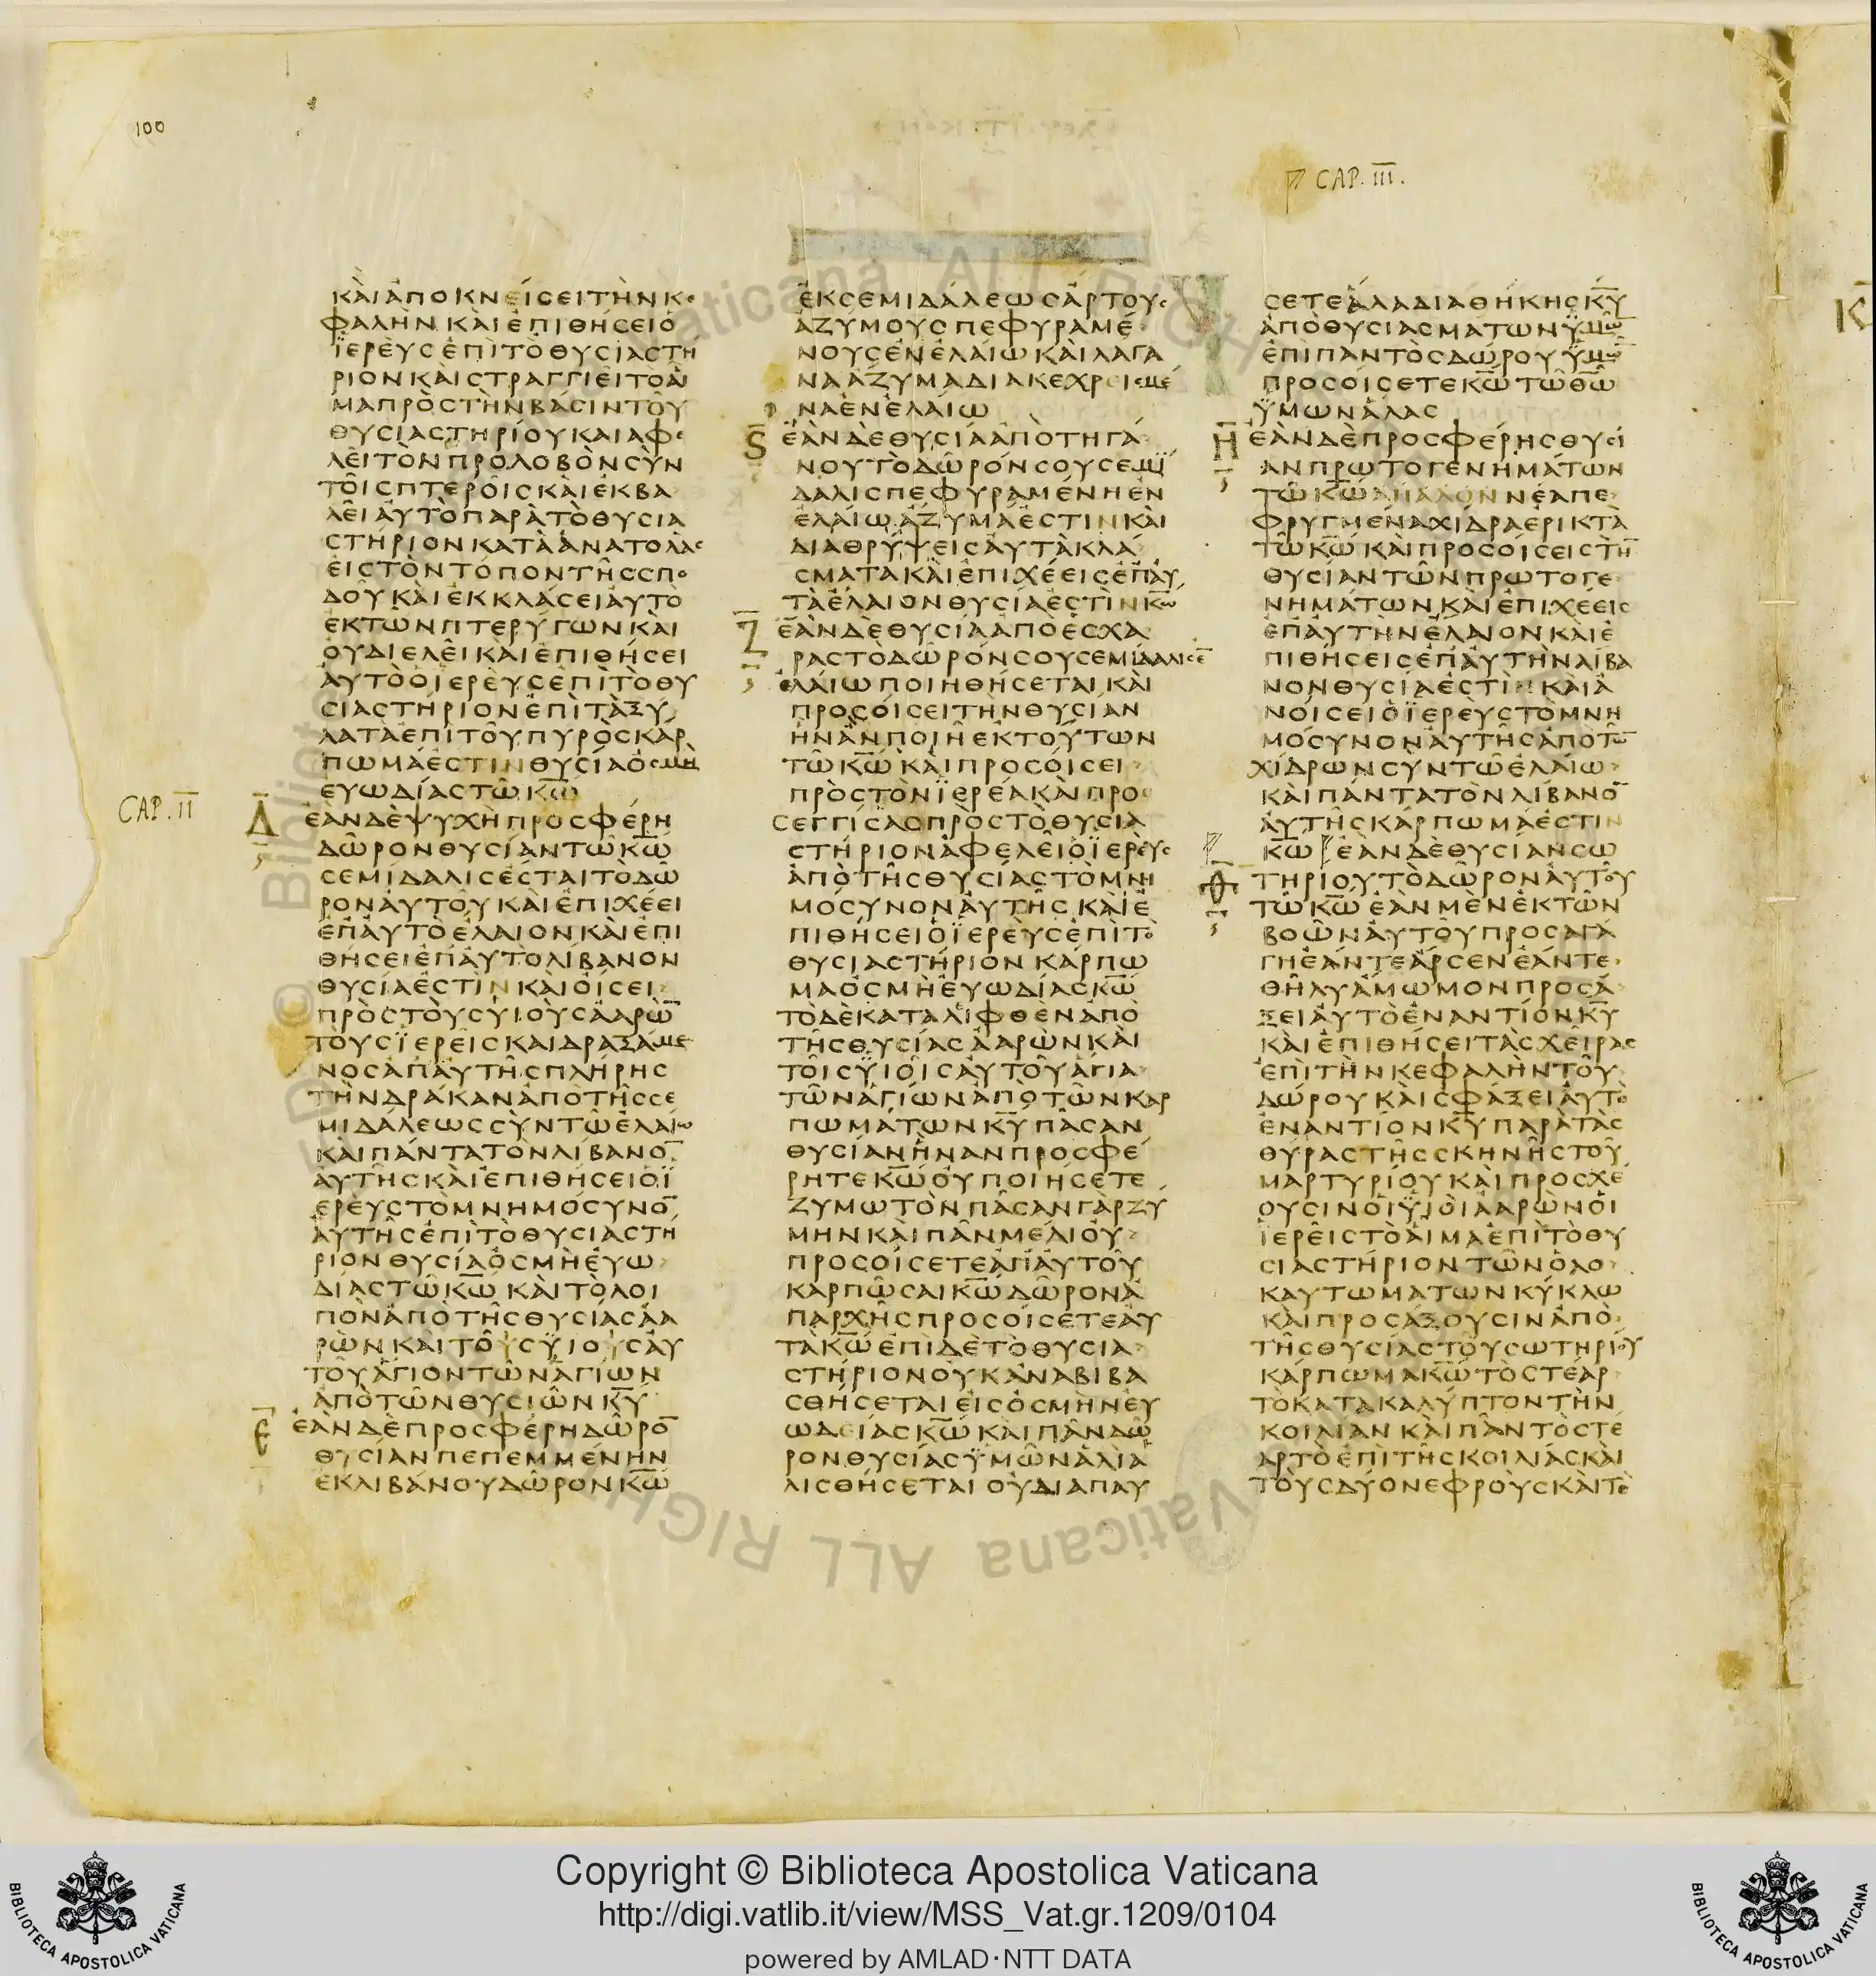 100
CAP. III.
ΚΑΙ ΑΠΟΚΝΕΙСΕΙ ΤΗΝ ΚΕ
ΦΑΛΗΝ ΚΑΙ ΕΠΙΘΗСΕΙ Ο
ΪΕΡΕΥС ΕΠΙ ΤΟ ΘΥСΙΑСΤΗ
ΡΙΟΝ ΚΑΙ СΤΡΑΓΓΙΕΙ ΤΟ ΑΙ
ΜΑ ΠΡΟС ΤΗΝ ΒΑСΙΝ ΤΟΥ
ΘΥСΙΑСΤΗΡΙΟΥ ΚΑΙ ΑΦΕ
ΛΕΙ ΤΟΝ ΠΡΟΛΟΒΟΝ СΥΝ
ΤΟΙС ΠΤΕΡΟΙС ΚΑΙ ΕΚΒΑ
ΛΕΙ ΑΥΤΟ ΠΑΡΑ ΤΟ ΘΥСΙΑ
СΤΗΡΙΟΝ ΚΑΤΑ ΑΝΑΤΟΛΑС
ΕΙС ΤΟΝ ΤΟΠΟΝ ΤΗС СΠΟ
ΔΟΥ ΚΑΙ ΕΚΚΛΑСΕΙ ΑΥΤΟ
ΕΚ ΤΩΝ ΠΤΕΡΥΓΩΝ ΚΑΙ
ΟΥ ΔΙΕΛΕΙ ΚΑΙ ΕΠΙΘΗСΕΙ
ΑΥΤΟ Ο ΪΕΡΕΥС ΕΠΙ ΤΟ ΘΥ
СΙΑСΤΗΡΙΟΝ ΕΠΙ ΤΑ ΞΥ
ΛΑ ΤΑ ΕΠΙ ΤΟΥ ΠΥΡΟС ΚΑΡ
ΠΩΜΑ ΕСΤΙΝ ΘΥСΙΑ ΟСΜΗ
ΕΥΩΔΙΑС ΤΩ ΚΩ̅
CAP. II
Δ
ΕΑΝ ΔΕ ΨΥΧΗ ΠΡΟСΦΕΡΗ
ΔΩΡΟΝ ΘΥСΙΑΝ ΤΩ ΚΩ̅
СΕΜΙΔΑΛΙС ΕСΤΑΙ ΤΟ ΔΩ
ΡΟΝ ΑΥΤΟΥ ΚΑΙ ΕΠΙΧΕΕΙ
ΕΠ ΑΥΤΟ ΕΛΑΙΟΝ ΚΑΙ ΕΠΙ
ΘΗСΕΙ ΕΠ ΑΥΤΟ ΛΙΒΑΝΟΝ
ΘΥСΙΑ ΕСΤΙΝ ΚΑΙ ΟΙСΕΙ
ΠΡΟС ΤΟΥС ΥΙΟΥС ΑΑΡΩ̅
ΤΟΥС ΪΕΡΕΙС ΚΑΙ ΔΡΑΞΑΜΕ
ΝΟС ΑΠ ΑΥΤΗС ΠΛΗΡΗС
ΤΗΝ ΔΡΑΚΑΝ ΑΠΟ ΤΗС СΕ
ΜΙΔΑΛΕΩС СΥΝ ΤΩ ΕΛΑΙΩ
ΚΑΙ ΠΑΝΤΑ ΤΟΝ ΛΙΒΑΝΟ̅
ΑΥΤΗС ΚΑΙ ΕΠΙΘΗСΕΙ Ο Ϊ
ΕΡΕΥС ΤΟ ΜΝΗΜΟСΥΝΟ̅
ΑΥΤΗС ΕΠΙ ΤΟ ΘΥСΙΑСΤΗ
ΡΙΟΝ ΘΥСΙΑ ΟСΜΗ ΕΥΩ
ΔΙΑС ΤΩ ΚΩ̅ ΚΑΙ ΤΟ ΛΟΙ
ΠΟΝ ΑΠΟ ΤΗС ΘΥСΙΑС ΑΑ
ΡΩΝ ΚΑΙ ΤΟΥС ΥΙΟΥС ΑΥ
ΤΟΥ ΑΓΙΟΝ ΤΩΝ ΑΓΙΩΝ
ΑΠΟ ΤΩΝ ΘΥСΙΩΝ ΚΥ̅
Ε
ΕΑΝ ΔΕ ΠΡΟСΦΕΡΗ ΔΩΡΟ̅
ΘΥСΙΑΝ ΠΕΠΕΜΜΕΝΗΝ
ΕΚ ΛΙΒΑΝΟΥ ΔΩΡΟΝ ΚΩ̅
ΕΚ СΕΜΙΔΑΛΕΩС ΑΡΤΟΥС
ΑΖΥΜΟΥС ΠΕΦΥΡΑΜΕ
ΝΟΥС ΕΝ ΕΛΑΙΩ ΚΑΙ ΛΑΓΑ
ΝΑ ΑΖΥΜΑ ΔΙΑΚΕΧΡΕΙСΜΕ
ΝΑ ΕΝ ΕΛΑΙΩ
S
ΕΑΝ ΔΕ ΘΥСΙΑ ΑΠΟ ΤΗΓΑ
ΝΟΥ ΤΟ ΔΩΡΟΝ СΟΥ СΕΜΙ
ΔΑΛΙС ΠΕΦΥΡΑΜΕΝΗ ΕΝ
ΕΛΑΙΩ ΑΖΥΜΑ ΕСΤΙΝ ΚΑΙ
ΔΙΑΘΡΥΨΕΙС ΑΥΤΑ ΚΛΑ
СΜΑΤΑ ΚΑΙ ΕΠΙΧΕΕΙС ΕΠ ΑΥ
ΤΑ ΕΛΑΙΟΝ ΘΥСΙΑ ΕСΤΙΝ ΚΩ̅
Ζ
ΕΑΝ ΔΕ ΘΥСΙΑ ΑΠΟ ΕСΧΑ
ΡΑС ΤΟ ΔΩΡΟΝ СΟΥ СΕΜΙΔΑΛΙС Ε̅
ΕΛΑΙΩ ΠΟΙΗΘΗСΕΤΑΙ ΚΑΙ
ΠΡΟСΟΙСΕΙ ΤΗΝ ΘΥСΙΑΝ
ΗΝ ΑΝ ΠΟΙΗ ΕΚ ΤΟΥΤΩΝ
ΤΩ ΚΩ̅ ΚΑΙ ΠΡΟСΟΙСΕΙ
ΠΡΟС ΤΟΝ ΪΕΡΕΑ ΚΑΙ ΠΡΟ
СΕΓΓΙСΑС ΠΡΟС ΤΟ ΘΥСΙΑ
СΤΗΡΙΟΝ ΑΦΕΛΕΙ Ο ΪΕΡΕΥС
ΑΠΟ ΤΗС ΘΥСΙΑС ΤΟ ΜΝΗ
ΜΟСΥΝΟΝ ΑΥΤΗС ΚΑΙ Ε
ΠΙΘΗСΕΙ Ο ΪΕΡΕΥС ΕΠΙ ΤΟ
ΘΥСΙΑСΤΗΡΙΟΝ ΚΑΡΠΩ
ΜΑ ΟСΜΗ ΕΥΩΔΙΑС ΚΩ̅
ΤΟ ΔΕ ΚΑΤΑΛΙΦΘΕΝ ΑΠΟ
ΤΗС ΘΥСΙΑС ΑΑΡΩΝ ΚΑΙ
ΤΟΙС ΫΙΟΙС ΑΥΤΟΥ ΑΓΙΑ
ΤΩΝ ΑΓΙΩΝ ΑΠΟ ΤΩΝ ΚΑΡ
ΠΩΜΑΤΩΝ ΚΥ̅ ΠΑСΑΝ
ΘΥСΙΑΝ ΗΝ ΑΝ ΠΡΟСΦΕ
ΡΗΤΕ ΚΩ̅ ΟΥ ΠΟΙΗСΕΤΕ
ΖΥΜΩΤΟΝ ΠΑСΑΝ ΓΑΡ ΖΥ
ΜΗΝ ΚΑΙ ΠΑΝ ΜΕΛΙ ΟΥ
ΠΡΟСΟΙСΕΤΕ ΑΠ ΑΥΤΟΥ
ΚΑΡΠΩСΑΙ ΚΩ̅ ΔΩΡΟΝ Α
ΠΑΡΧΗС ΠΡΟСΟΙСΕΤΕ ΑΥ
ΤΑ ΚΩ̅ ΕΠΙ ΔΕ ΤΟ ΘΥСΙΑ
СΤΗΡΙΟΝ ΟΥΚ ΑΝΑΒΙΒΑ
СΘΗСΕΤΑΙ ΕΙС ΟСΜΗΝ ΕΥ
ΩΔΕΙΑС ΚΩ̅ ΚΑΙ ΠΑΝ ΔΩ
ΡΟΝ ΘΥСΙΑС ΫΜΩΝ ΑΛΙ Α
ΛΙСΘΗСΕΤΑΙ ΟΥ ΔΙΑΠΑΥ
СΕΤΕ ΑΛΑ ΔΙΑΘΗΚΗС ΚΥ̅
ΑΠΟ ΘΥСΙΑСΜΑΤΩΝ ΫΜΩ̅
ΕΠΙ ΠΑΝΤΟС ΔΩΡΟΥ ΫΜΩ̅
ΠΡΟСΟΙСΕΤΕ ΚΩ̅ ΤΩ ΘΩ̅
ΫΜΩΝ ΑΛΑС
Η
ΕΑΝ ΔΕ ΠΡΟСΦΕΡΗС ΘΥСΙ
ΑΝ ΠΡΩΤΟΓΕΝΗΜΑΤΩΝ
ΤΩ ΚΩ̅ ΑΠΑΛΟΝ ΝΕΑ ΠΕ
ΦΡΥΓΜΕΝΑ ΧΙΔΡΑ ΕΡΙΚΤΑ
ΤΩ ΚΩ̅ ΚΑΙ ΠΡΟСΟΙСΕΙС ΤΗ̅
ΘΥСΙΑΝ ΤΩΝ ΠΡΩΤΟΓΕ
ΝΗΜΑΤΩΝ ΚΑΙ ΕΠΙΧΕΕΙС
ΕΠ ΑΥΤΗΝ ΕΛΑΙΟΝ ΚΑΙ Ε
ΠΙΘΗСΕΙС ΕΠ ΑΥΤΗΝ ΛΙΒΑ
ΝΟΝ ΘΥСΙΑ ΕСΤΙΝ ΚΑΙ Α
ΝΟΙСΕΙ Ο ΪΕΡΕΥС ΤΟ ΜΝΗ
ΜΟСΥΝΟΝ ΑΥΤΗС ΑΠΟ ΤΩ̅
ΧΙΔΡΩΝ СΥΝ ΤΩ ΕΛΑΙΩ
ΚΑΙ ΠΑΝΤΑ ΤΟΝ ΛΙΒΑΝΟ̅
ΑΥΤΗС ΚΑΡΠΩΜΑ ΕСΤΙΝ
ΚΩ̅ ΕΑΝ ΔΕ ΘΥСΙΑΝ СΩ
Θ
ΤΗΡΙΟΥ ΤΟ ΔΩΡΟΝ ΑΥΤΟΥ
ΤΩ ΚΩ̅ ΕΑΝ ΜΕΝ ΕΚ ΤΩΝ
ΒΟΩΝ ΑΥΤΟΥ ΠΡΟСΑΓΑ
ΓΗ ΕΑΝ ΤΕ ΑΡСΕΝ ΕΑΝ ΤΕ
ΘΗΛΥ ΑΜΩΜΟΝ ΠΡΟСΑ
ΞΕΙ ΑΥΤΟ ΕΝΑΝΤΙΟΝ ΚΥ̅
ΚΑΙ ΕΠΙΘΗСΕΙ ΤΑС ΧΕΙΡΑС
ΕΠΙ ΤΗΝ ΚΕΦΑΛΗΝ ΤΟΥ
ΔΩΡΟΥ ΚΑΙ СΦΑΞΕΙ ΑΥΤΟ
ΕΝΑΝΤΙΟΝ ΚΥ̅ ΠΑΡΑ ΤΑС
ΘΥΡΑС ΤΗС СΚΗΝΗС ΤΟΥ
ΜΑΡΤΥΡΙΟΥ ΚΑΙ ΠΡΟСΧΕ
ΟΥСΙΝ ΟΙ ΫΙΟΙ ΑΑΡΩΝ ΟΙ
ΪΕΡΕΙС ΤΟ ΑΙΜΑ ΕΠΙ ΤΟ ΘΥ
СΙΑСΤΗΡΙΟΝ ΤΩΝ ΟΛΟ
ΚΑΥΤΩΜΑΤΩΝ ΚΥΚΛΩ
ΚΑΙ ΠΡΟСΑΞΟΥСΙΝ ΑΠΟ
ΤΗС ΘΥСΙΑС ΤΟΥ СΩΤΗΡΙΟΥ
ΚΑΡΠΩΜΑ ΚΩ̅ ΤΟ СΤΕΑΡ
ΤΟ ΚΑΤΑΚΑΛΥΠΤΟΝ ΤΗΝ
ΚΟΙΛΙΑΝ ΚΑΙ ΠΑΝ ΤΟ СΤΕ
ΑΡ ΤΟ ΕΠΙ ΤΗС ΚΟΙΛΙΑС ΚΑΙ
ΤΟΥС ΔΥΟ ΝΕΦΡΟΥС ΚΑΙ ΤΟ
Κ
Copyright © Biblioteca Apostolica Vaticana
http://digi.vatlib.it/view/MSS_Vat.gr.1209/0104
powered by AMLAD·NTT DATA
BIBLIOTECA APOSTOLICA VATICANA
BIBLIOTECA APOSTOLICA VATICANA